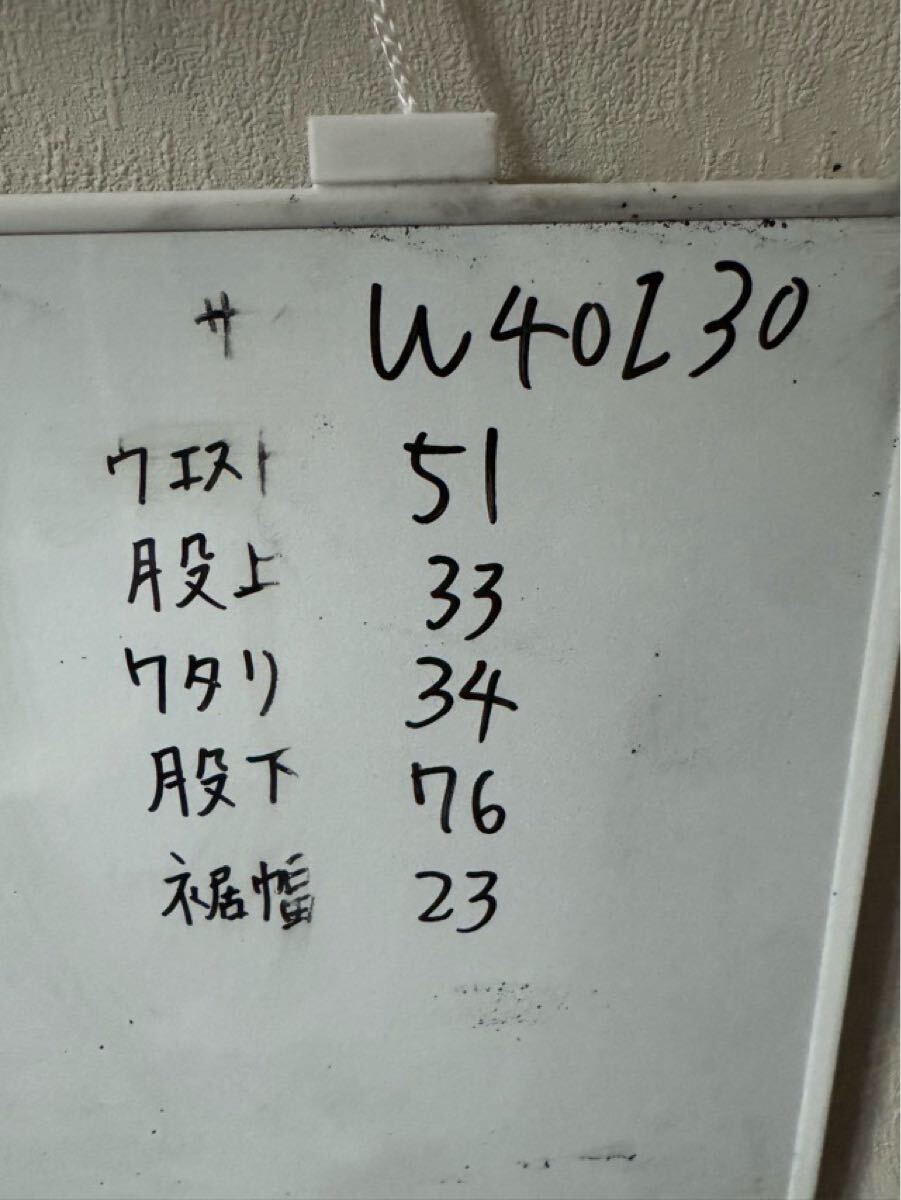 サ W40L30
ウエスト 51
股上 33
ワタリ 34
股下 76
裾幅 23